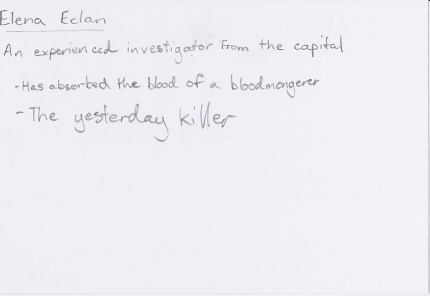 Elena Eclan
An experienced investigator from the capital
-Has absorbed the blood of a bloodmongerer
-The yesterday killer